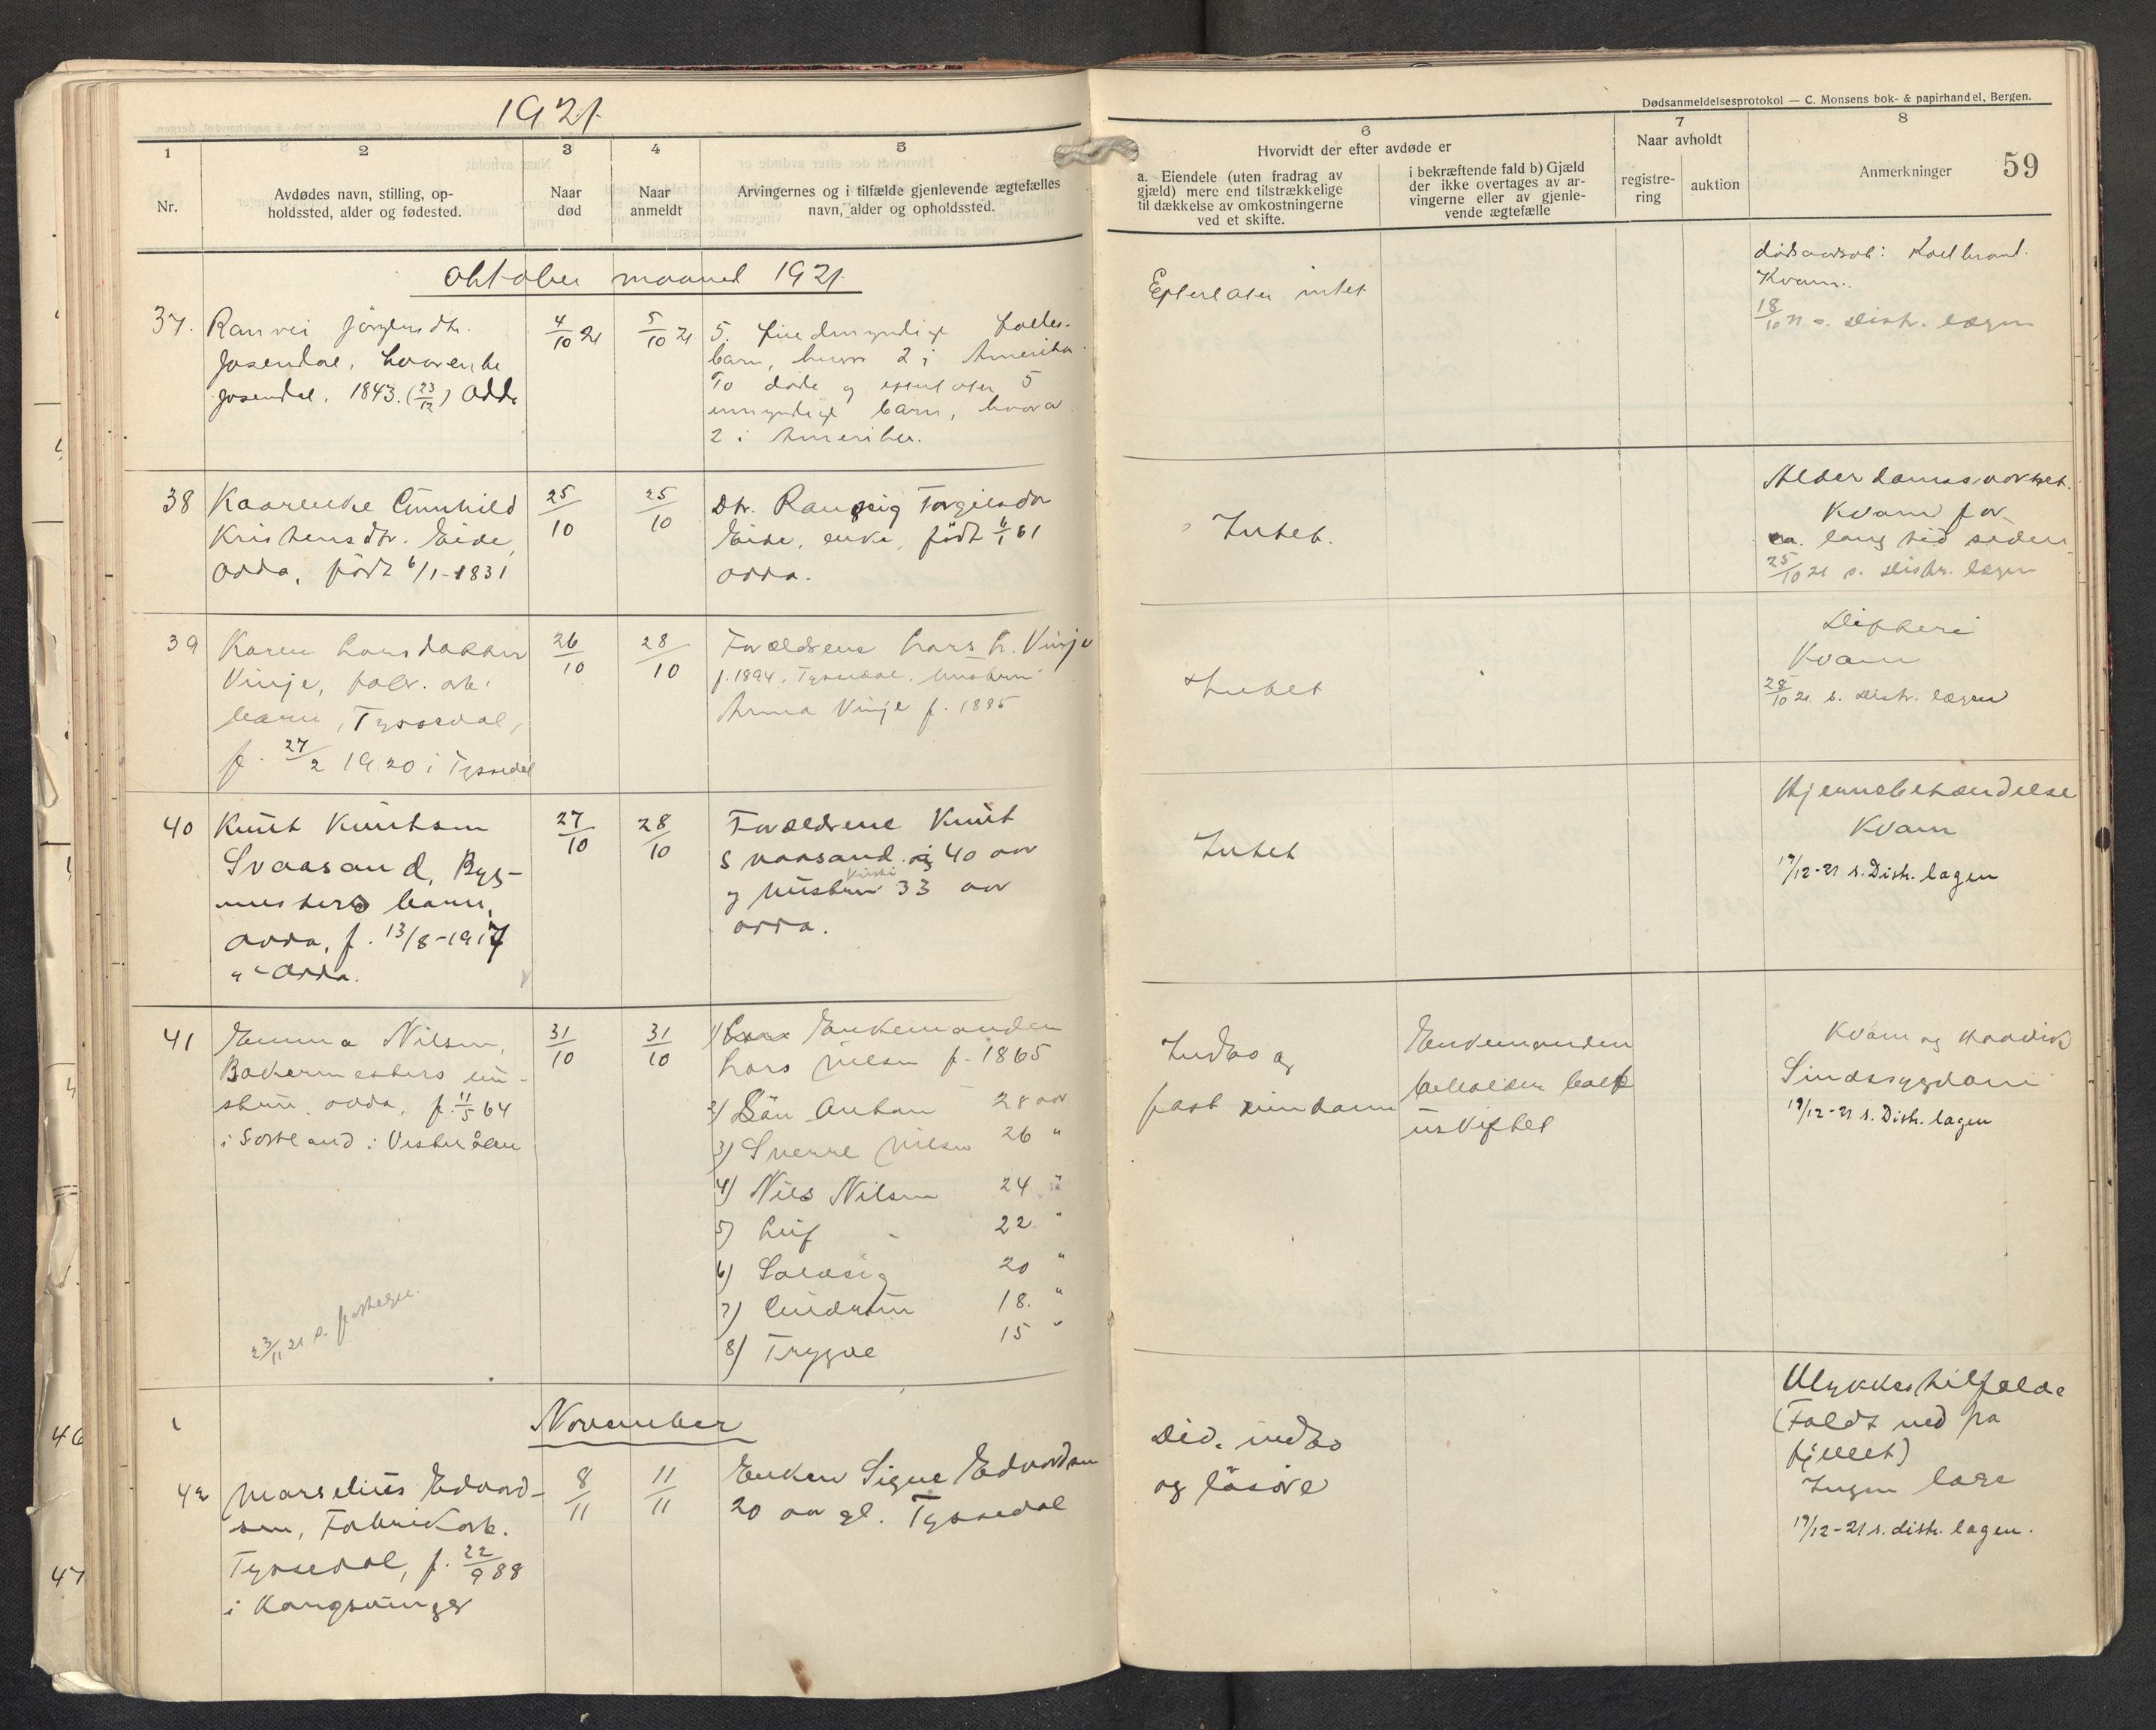 1921.
Dødsanmeldelsesprotokol — C. Monsens bok- & papirhandel, Bergen.
59
1
Nr.
2
Avdødes navn, stilling, op-
holdssted, alder og fødested.
3
Naar
død
4
Naar
anmeldt
5
Arvingernes og i tilfælde gjenlevende ægtefælles
navn, alder og opholdssted.
6
Hvorvidt der efter avdøde er
a. Eiendele (uten fradrag av
gjæld) mere end tilstrækkelige
til dækkelse av omkostningerne
ved et skifte.
i bekræftende fald b) Gjæld
der ikke overtages av ar-
vingerne eller av gjenle-
vende ægtefælle
7
Naar avholdt
registre-
ring
auktion
8
Anmerkninger
Oktober maaned 1921.
37.
Ranvei Jörgensdtr.
Josendal, kaarenke
Josendal. 1843. (23/12) Odda
4/10 21
5/10 21
5 fuldmyndige fælles-
barn, hvorav 2 i Amerika.
To døde og efterlater 5
umyndige barn, hvorav
2 i Amerika.
Efterlater intet
dødsaarsak: Koldbrand.
Kvam.
18/10 21 s. Distr. lægen
38
Kaarenke Gunhild
Kristensdtr. Eide,
Odda, født 6/1-1831
25/10
25/10
Dtr. Torgilsdtr
Eide, enke, født 6/1 61
Odda.
Intet.
Alderdomssvakhet.
Kvam for
ca. lang tid siden
25/10 21 s. Distr. lægen
39
Karen Larsdatter
Vinje, fabr. arb.
barn, Tyssedal,
f. 27/2 1920 i Tyssedal
26/10
28/10
Forældrene Lars L. Vinje
f. 1894, Tyssedal. Hustru
Anna Vinje f. 1895
Intet
Difteri
Kvam
28/10 21 s. Distr. lægen
40
Knut Knutsen
Svaasand, Byg-
mesters barn,
Odda, f. 13/8-1917
i Odda.
27/10
28/10
Forældrene Knut
Svaasand 40 aar
og hustru 33 aar
Odda.
Intet
Hjernebetændelse
Kvam
19/12-21 s. Distr. lægen
41
Emma Nilsen,
Bakermesters hu-
stru. Odda, f. 11/5 64
i Sortland i Vesterålen
23/11 21 s.
31/10
31/10
1) Enkemanden
Lars Nilsen f. 1865
2) Anton 28 aar
3) Sverre Nilsen 26 "
4) Nils Nilsen 24 "
5) Leif " 22 "
6) Solveig 20 "
7) Gudrun 18. "
8) Trygve 15 "
Indbo og
fast eiendom
Enkemanden
beholder boet
uskiftet
Kvam og
Sindssygdom
19/12-21 s. Distr. lægen
November
42
Marselius Edvard-
sen, Fabrikarb.
Tyssedal, f. 22/9 88
i Kongsvinger
8/11
11/11
Enken Signe Edvardsen
20 aar gl. Tyssedal
Div. indbo
og løsøre
Ulykkestilfælde
(Faldt ned fra
fjellet)
Ingen læge
19/12-21 s. distr. lægen.
46
47